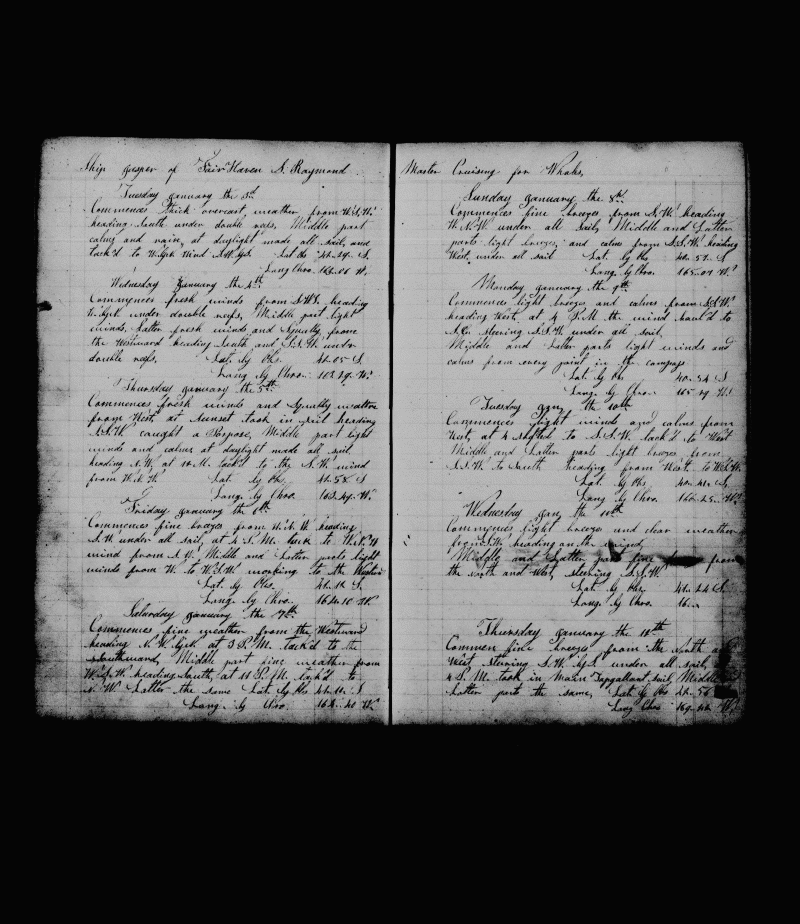 Ship Jasper of Fair Haven S. Raymond
Tuesday January the 3d
Commences thick overcast weather from W.S.W.
heading South under double reefs, Middle part
calms and rain, at daylight made all sail, and
tack'd to
Long Chro.
Wednesday January the 4th
Commences fresh winds from heading
under double reefs, Middle part light
winds. Latter fresh winds and squally from
the Westward heading South and S.S.W. under
double reefs. Lat. by Obs. 42..05 S.
Long by Chro. 163..29 W.
Thursday January the 5th
Commences fresh winds and squally weather
from West, at sunset took in sail heading
S.S.W. caught a Porpose, Middle part light
winds and calms at daylight made all sail
heading N.W. at M. tack'd to the S.W. wind
from W.N.W. Lat. by Obs. 41..58 S
Long. by Chro. 163..49 W.
Friday January the 6th
Commences fine breezes from W.N.W. heading
S.W. under all sail, at 4 P.M. tack to
wind from Middle and Latter parts light
winds from W. to W.S.W. working to the
Lat. by Obs.
Long. by Chro. 164..10 W.
Saturday January the 7th
Commences fine weather from the Westward
heading at 3 P.M. tack'd to the
Southward, Middle part fine weather from
W.S.W. heading South, at 11 P.M. tack'd to
N.W. Latter the same Lat by Obs
Long. by Chro. 164..40 W.
Master Cruising for Whales,
Sunday January the 8th
Commences fine breezes from N.W. heading
under all sail, Middle and Latter
parts light breezes, and calms from S.S.W. heading
West, under all sail Lat. by Obs
Long. by Chro. 165..07 W.
Monday January the 9th
Commences light breezes and calms from S.S.W.
heading West, at 4 P.M. the wind haul'd to
steering S.S.W. under all sail,
Middle and Latter parts light winds and
calms from every point in the compass
Lat. by Obs 40..54 S
Long. by Chro. 165..29 W.
Tuesday Jan the 10th
Commences light winds and calms from
West, at 4 shifted to S.S.W. tack'd to West
Middle and Latter parts light breezes from
S.S.W. to South heading from West to W.S.W.
Lat. by Obs.
Long by Chro. 166..25 W.
Wednesday Jan the 11th
Commences light breezes and clear weather
from heading on the
Middle and Latter part fine from
the North and West, steering S.S.W.
Lat. by Obs 41..24 S.
Long. by Chro.
Thursday January the 12th
Commen fine breezes from the North and
West, steering under all sail,
P.M. took in Main Topgallant sail, Middle
Latter part the same, Lat by Obs 42..56
Long Chro